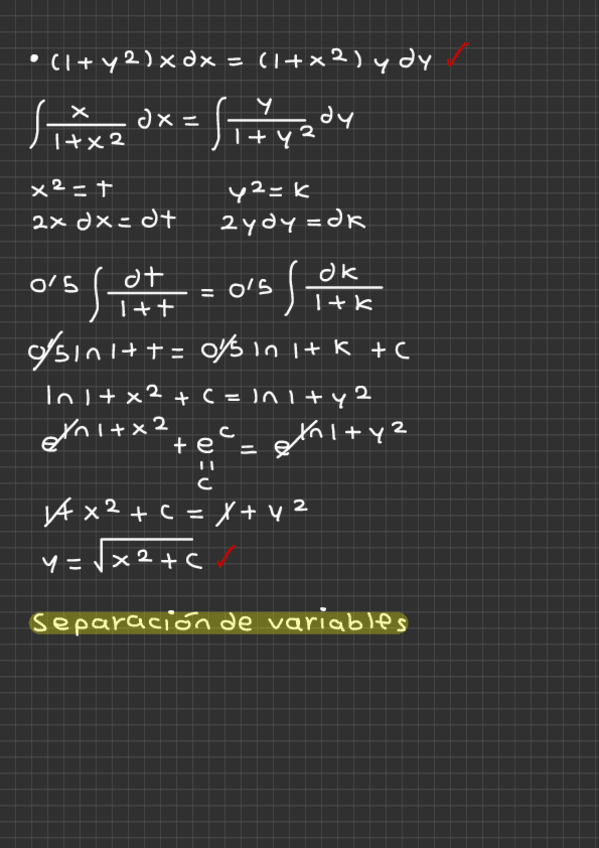 • (1+y²)xdx = (1+x²)ydy ✓
∫ x/(1+x²) dx = ∫ y/(1+y²) dy
x² = t y² = k
2x dx = dt 2ydy = dk
0'5 ∫ dt/(1+t) = 0'5 ∫ dk/(1+k)
0'5 ln 1+t = 0'5 ln 1+k + c
ln 1+x² + c = ln 1+y²
e^(ln 1+x²) + e^c = e^(ln 1+y²)
=
c
1+x² + c = 1+y²
y = √(x²+c) ✓
separación de variables